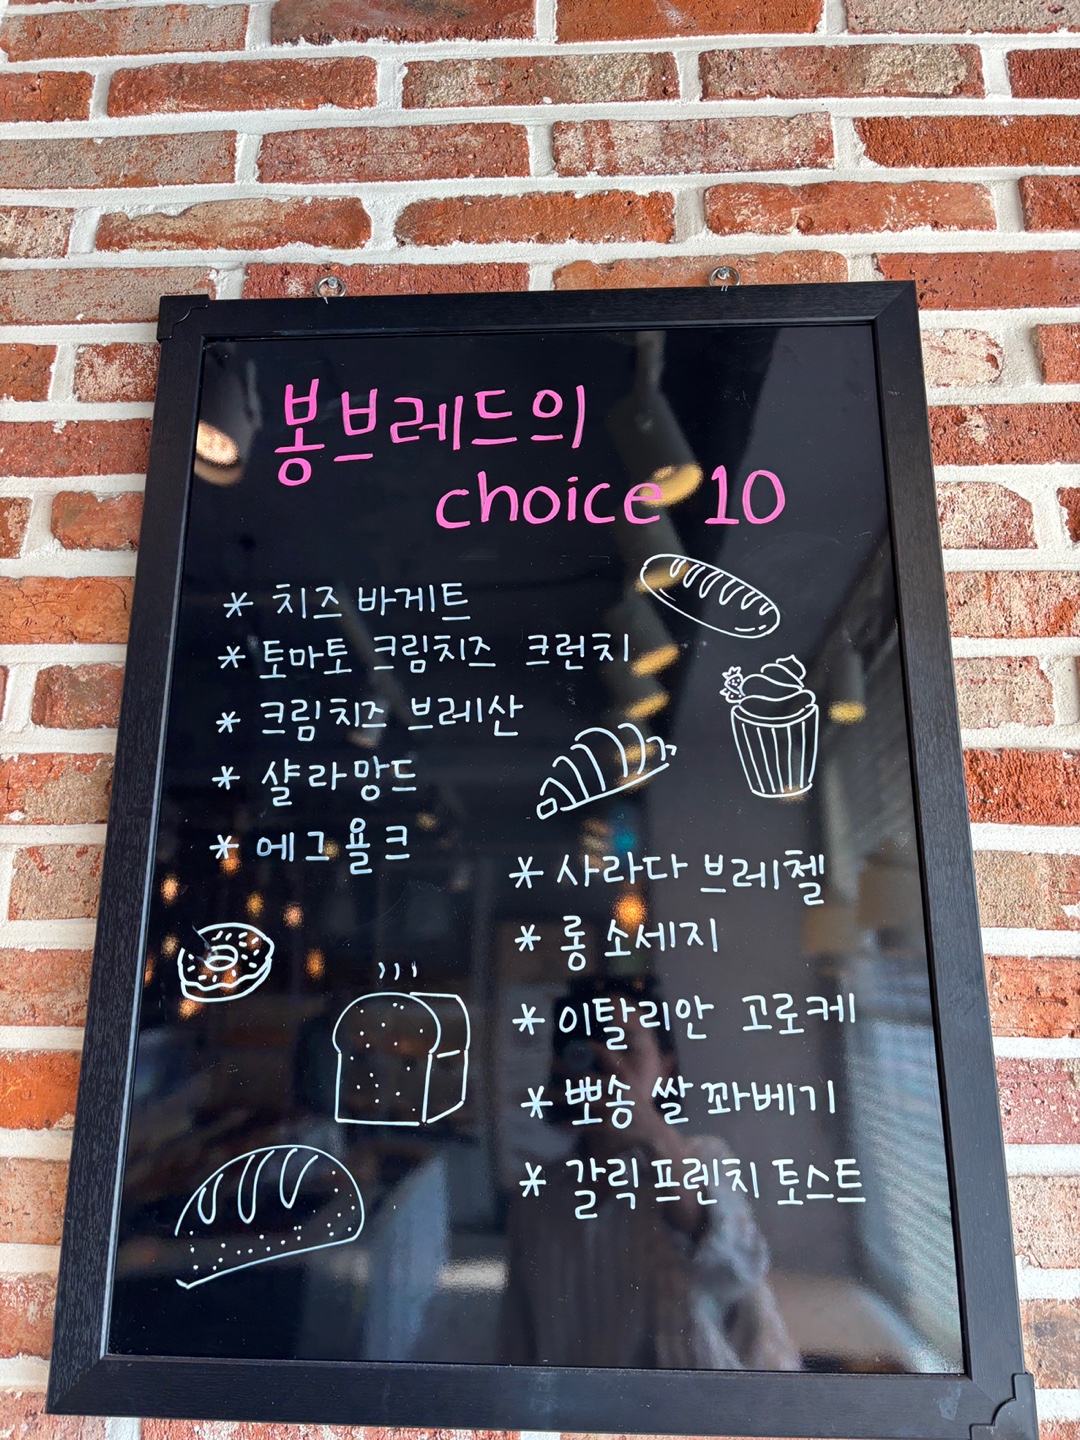 봉브레드의
choice 10
* 치즈 바게트
* 토마토 크림치즈 크런치
* 크림치즈 브레산
* 샬라망드
* 에그욜크
* 사라다 브레첼
* 롱소세지
* 이탈리안 고로케
* 뽀송 쌀 꽈베기
* 갈릭 프렌치 토스트